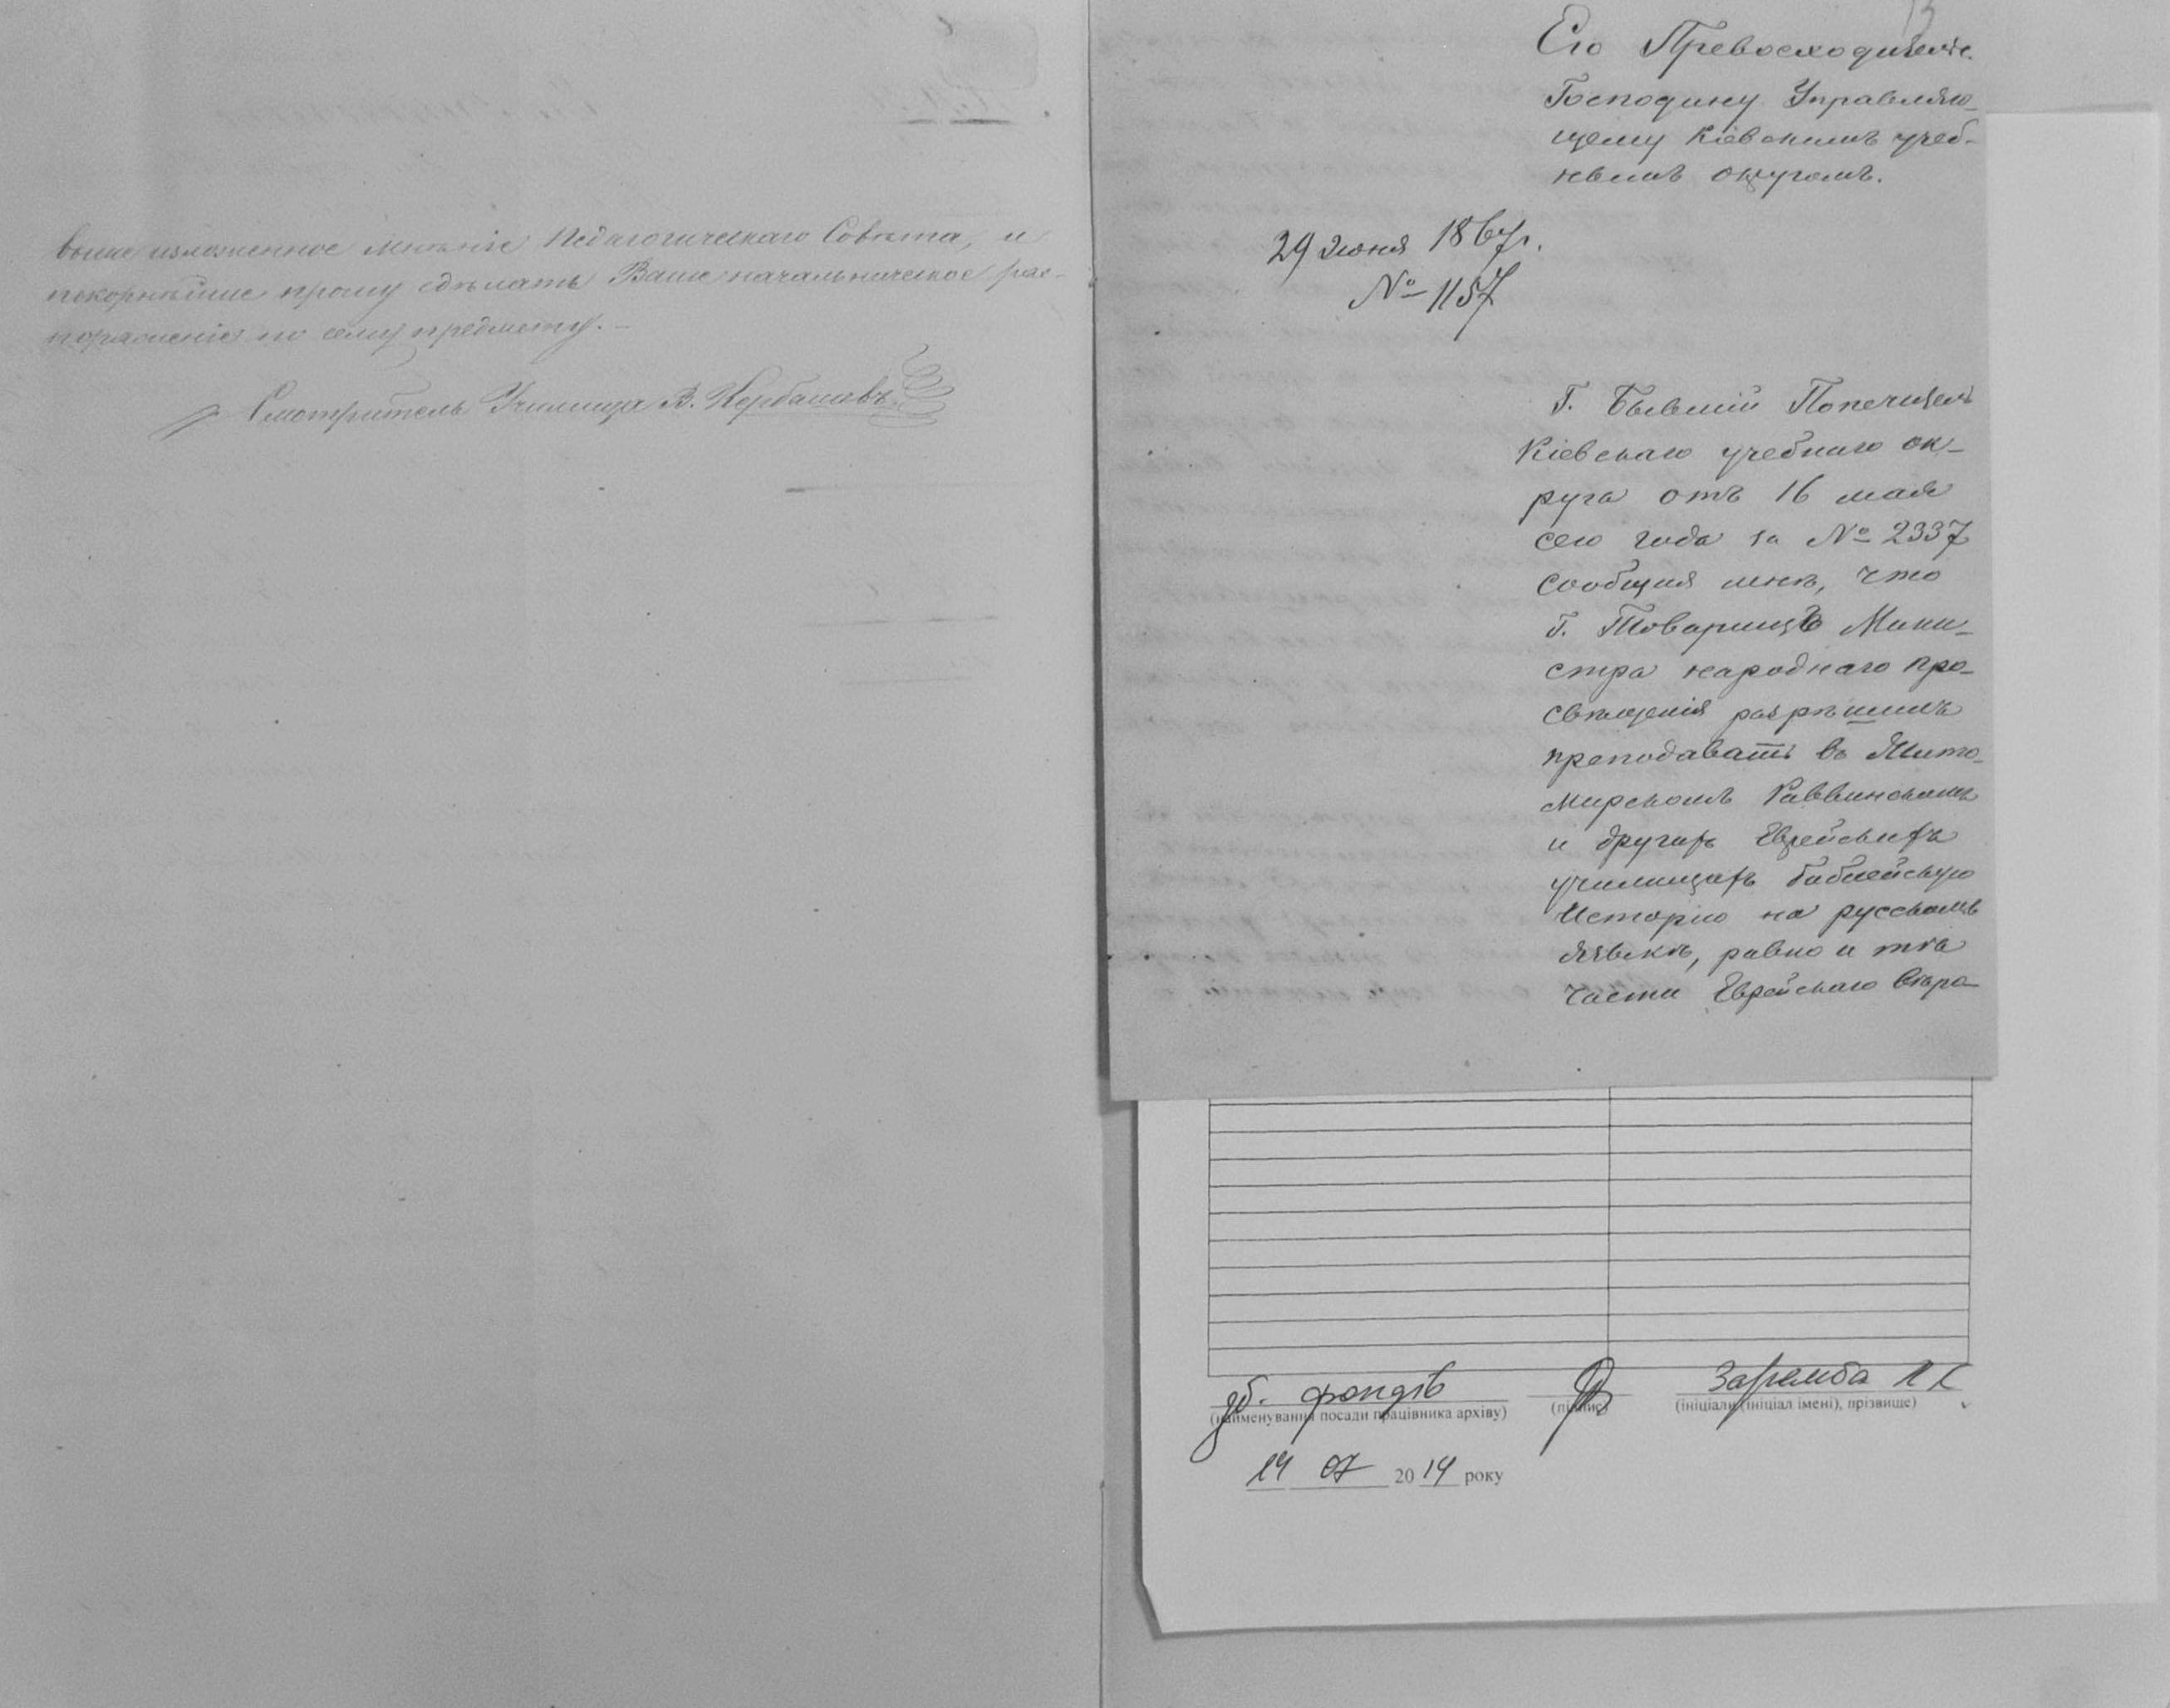 выше изложенное мнѣніе Педагогическаго Совѣта, и
покорнѣйше прошу сдѣлать Ваше начальническое рас-
поряженіе по сему предмету. –
Смотритель Училища В.
13
Его Превосходительс.
Господину Управляю-
щему Кіевскимъ учеб-
нымъ округомъ.
29 Июня 1867г.
№ 1157
Г. Бывшій Попечитель
Кіевскаго учебнаго ок-
руга отъ 16 мая
сего года за № 2337
сообщил мнѣ, что
Г. Товарищъ Мини-
стра народнаго про-
свѣщенія разрѣшилъ
преподавать въ Жито-
мирскомъ Раввинскомъ
и другихъ Еврейскихъ
училищахъ библейскую
Исторію на русскомъ
языкѣ, равно и тѣ
части Еврейскаго вѣро-
зб. фондів
Заремба
(найменування посади працівника архіву)
(підпис)
(ініціали (ініціал імені), прізвище)
14 07 2014 року